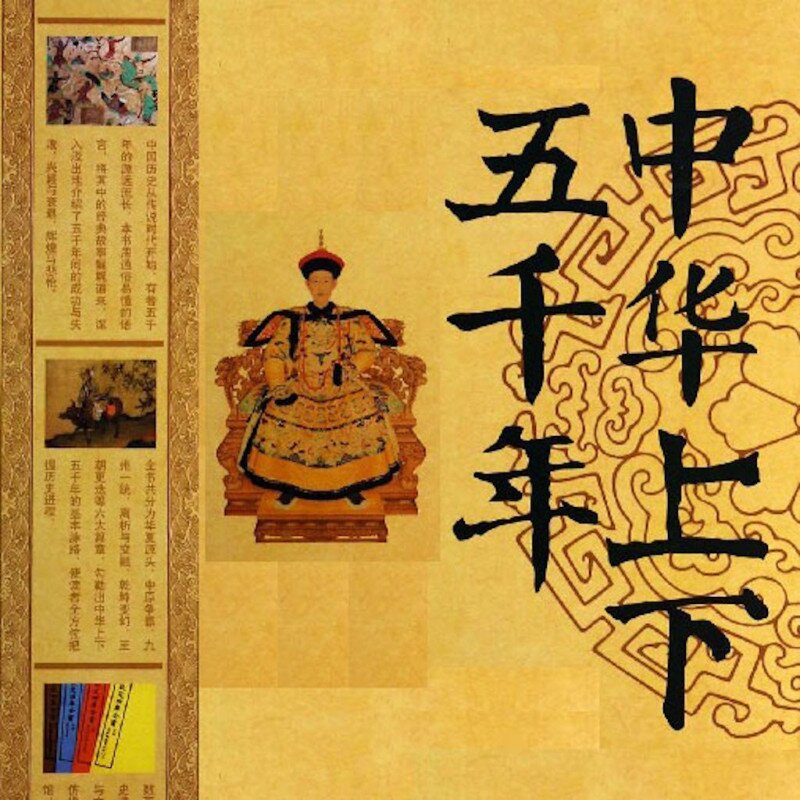 中华上下
五千年
中国历史从传说时代开始，有着五千
年的源远流长，本书用通俗易懂的语
言，将其中的经典故事娓娓道来，深
入浅出地介绍了五千年间的成功与失
误、兴盛与衰退、辉煌与悲怆。
全书共分为华夏源头、中原争霸、九
州一统、离析与交融、乾坤变幻、王
朝更迭等六大篇章，勾勒出中华上下
五千年的基本脉络，使读者全方位把
握历史进程
数
史
与
仿
馆